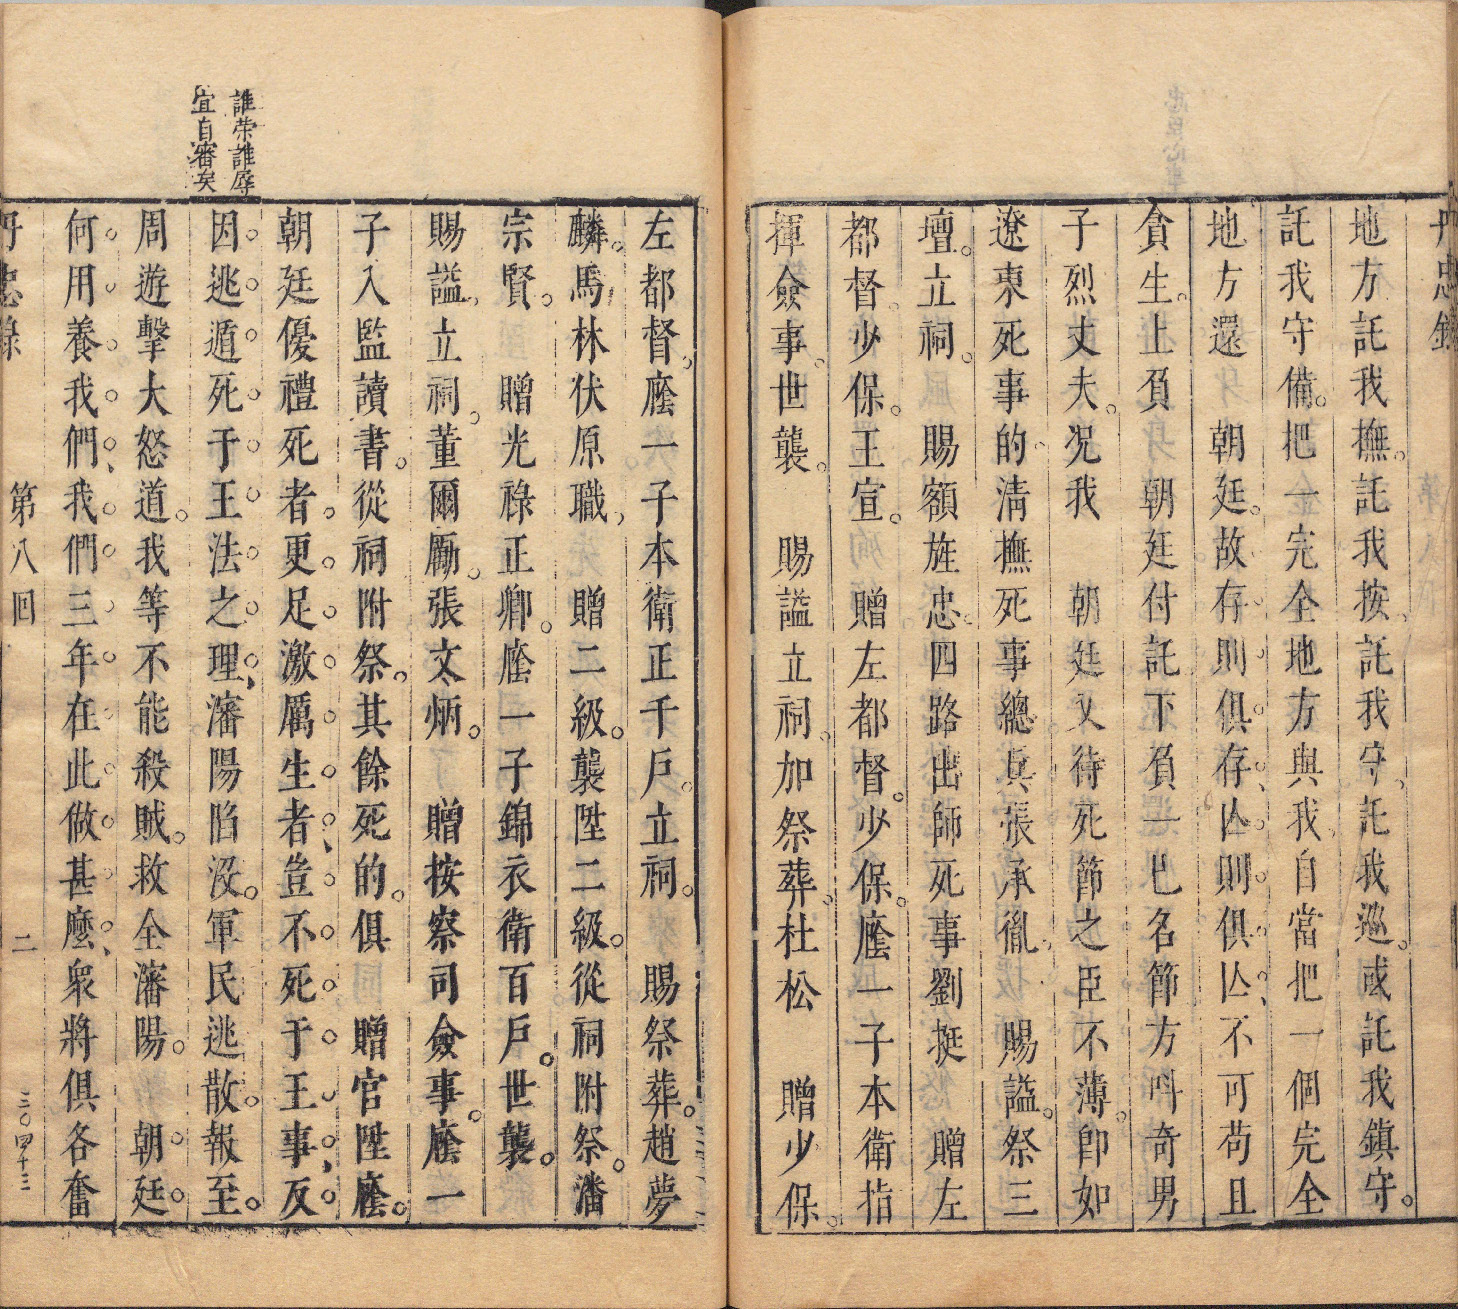 地方託我撫。託我按、託我守、託我巡。或託我鎮守。
託我守備。把一完全地方與我、自當把一個完全
地方還　朝廷。故存則俱存、亾則俱亾、不可苟且
貪生。上負　朝廷付託下負一己名節方呌奇男
子烈丈夫。况我　朝廷又待死節之臣不薄。卽如
遼東死事的淸撫死事總兵張承徹、賜謚。祭三
壇。立祠。賜額旌忠。四路出師死事劉挺　贈左
都督。少保。王宣。贈左都督。少保。廕一子本衛指
揮僉事。世襲。　賜謚立祠、加祭葬。杜松　贈少保。
左都督、廕一子本衛正千戶。立祠。　賜祭葬。趙夢
麟。馬林伏原職、　贈二級。襲陞二級。從祠附祭。潘
宗賢。　贈光祿正卿。廕一子錦衣衛百戶。世襲。
賜謚、立祠。董爾勵。張文炳。　贈按察司僉事。廕一
子入監讀書。從祠附祭。其餘死的。俱　贈官陞廕。
朝廷優禮死者。更足激厲生者、豈不死于王事、反
因逃遁死于王法之理、瀋陽陷沒。軍民逃散。報至。
周遊擊大怒道。我等不能殺賊。救全瀋陽。　朝廷。
何用養我們、我們三年在此做甚麼、衆將俱各奮
誰荣誰辱
宜自審矣
丹忠錄
第八回
二
三〇四十三